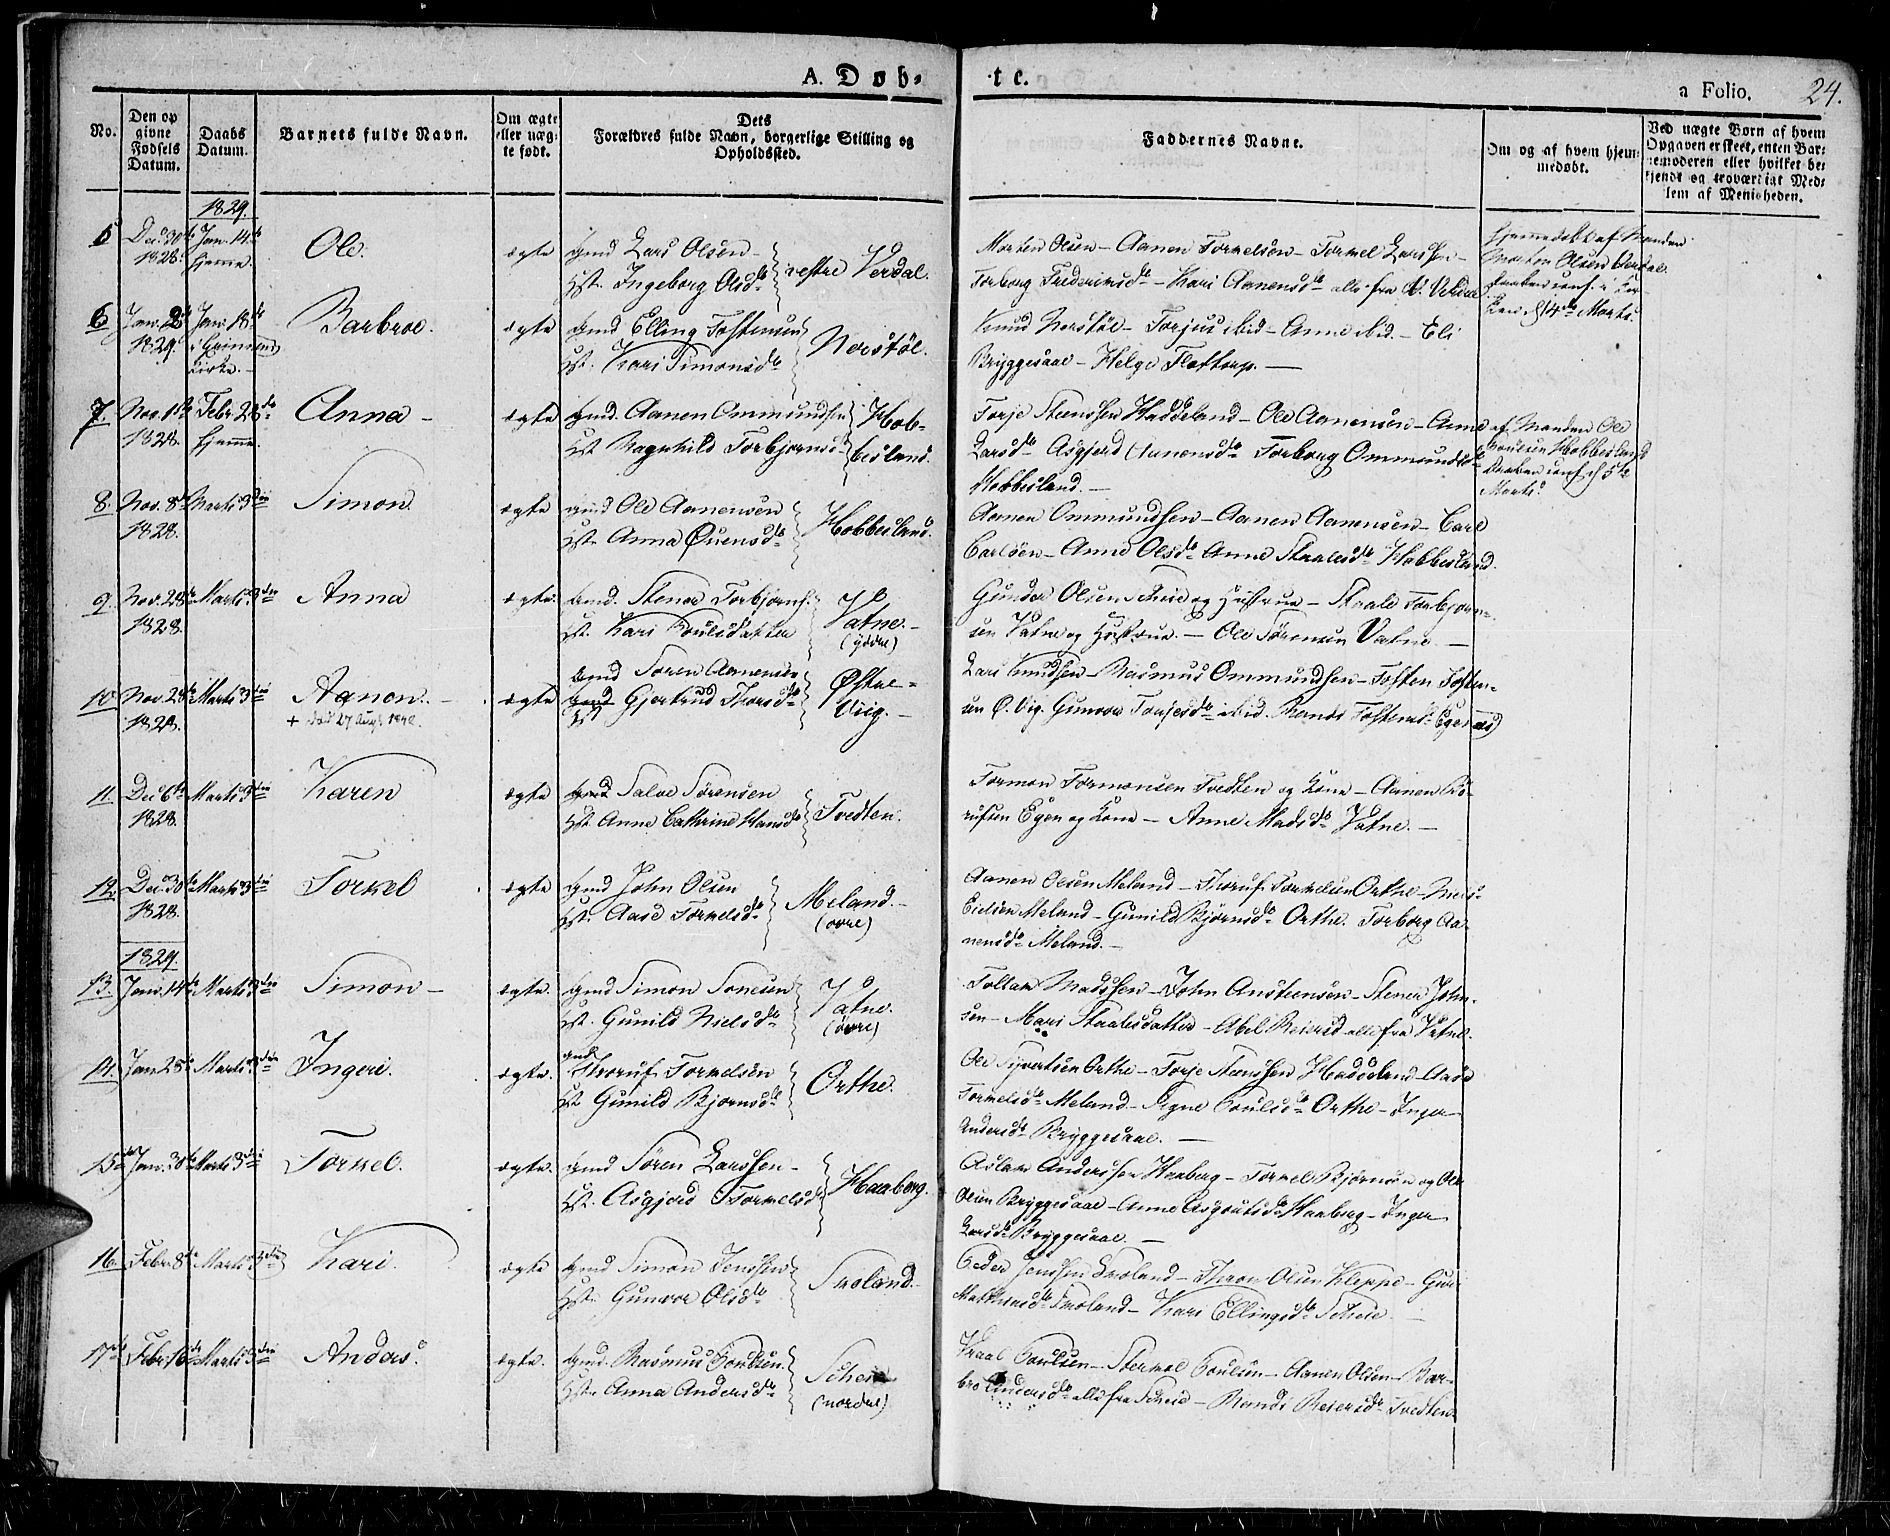 A. Døb-
te.
a Folio. 24.
No.
Den op
givne
Fødsels
Datum.
Daabs
Datum.
Barnets fulde Navn.
Om ægte
eller uæg-
te født.
Dets
Forældres fulde Navn, borgerlige Stilling og
Opholdssted.
Faddernes Navne.
Om og af hvem hjem-
medøbt.
Ved uægte Børn af hvem
Opgaven er skeet, enten Bar-
nemoderen eller hvilket be-
kjendt og troværdigt Med-
lem af Menigheden.
1829.
5 Dec. 30te Jan. 14de Ole. ægte Gmd Lars Olsen
1828. hjemme. Hst. Ingeborg Olsdr vestre Verdal.
Morten Olsen – Aanen Torkelsen – Torkel Larssen –
Torborg Frederiksdr – Kari Aanensdr alle fra V. Verdal
Hjemmedøbt af Manden
Morten Olsen Verdal
6 Jan. 2den Jan. 18de Barbroe. ægte Gmd Elling Tostensen
1829. i Grimenes Kirke. Hst. Kari Simonsdr Norstøl.
Knud Norstøl – Torjus ibid – Anne ibid. – Eli
Bryggesaae – Helge Flottorp. —
7. Nov. 1ste Febr. 28de Anna – ægte Gmd. Aanen Ommundsen
1828. hjemme. Hst Ragnhild Torbjørnsdr Hob-
besland.
Torje Steenssen Haddeland – Ole Aanensen – Anne
Larsdr Asgjerd Aanensdr Torborg Ommundsdr
Hobbesland. —
af Manden Ole
Poulsen Hobbesland
8. Nov. 8de Marts 3die Simon ægte Gmd Ole Aanensen
1828. Hst. Anna Øvensdr Hobbesland.
Aanen Ommundsen – Aanen Aanensen – Carl
Carlsen – Anne Olsdr Anne Staalesdr Hobbesland.
9. Nov. 28de Marts 3die Anna ægte. Gmd. Stener Torbjørns.
1828. Hst. Kari Poulsdatter Vatne. –
(ydre)
Gunder Olsen Scheie og Hustrue – Staale Torbjørn-
sen Vatne og Hustrue. – Ole Sørensen Vatne. —
10. Nov 28de Marts 3die Aanon. – ægte Gmd Søren Aanensen
+ død 27 Aug. 1842.
1828. Hst Gjertrud Thorsdr Østre-
Viig. –
Lars Knudsen – Rasmus Ommundsen – Tosten Tosten-
sen Ø. Vig. Gunvor Torjesdr ibid. Randi Tostensdr Egenæs)
11. Dec 6te Marts 3die Karen ægte Gmd Salve Sørensen
1828. Hst Anne Cathrine Hansdr Tvedten.
Tormon Tormonsen Tvedten og Kone – Aanen Ro-
rufsen Egen og Kone – Anne Madsdr Vatne. —
12. Dec. 30te Marts 3die Torkel ægte Gmd John Olsen
1828. Hst. Aase Torkelsdr Meland. –
(øvre)
Aanen Olsen Meland – Thoruf Torkelsen Orthe – Niels
Eielsen Meland – Gunild Bjørnsdr Orthe. Torborg Aa-
nensdr Meland. —
1829.
13. Jan. 14de Marts 3die Simon – ægte. Gmd Simon Sonesen
Hst. Gunild Nielsdr Vatne.
(øvre)
Tollak Madssen – John Anstensen – Stener John-
sen – Mari Staalesdatter – Abel Reiersd alle fra Vatne.
14. Jan 28de Marts 3die Ingeri. ægte. Gmd Thoruf Torkelsen
Hst Gunild Bjørnsdr Orthe.
Ole Syvertsen Orthe – Torje Steenssen Haddeland – Aase
Torkelsdr Meland – Signe Poulsdr Orthe – Inger
Andersdr Bryggesaae. —
15. Jan. 30te Marts 3die Torkel. ægte. Gmd Søren Larssen –
Hst. Asgjerd Torkelsdr Haaberg.
Aslak Anderssen Haaberg – Torkel Bjørnsen og Ole
Olsen Bryggesaae – Anne Asgoutsdr Haaberg – Inger
Larsdr Bryggesaae. —
16. Febr. 8de Marts 3die Kari. ægte Gmd Simon Jenssen
Hst. Gunvor Olsdr Froland. –
Peder Jenssen Froland – Thron Olsen Kleppe – Guri
Froland – Kari Ellingsdr Scheie. –
17. Febr. 16de Marts 3die Anders. ægte. Gmd. Rasmus Poulsen
Hst. Anna Andersdr Scheie
(nordre)
Kraal Poulsen – Sterkol Poulsen – Aanen Olsen – Bar-
bro Andersdr alle fra Scheie – Randi Reiersdr Tvedten.